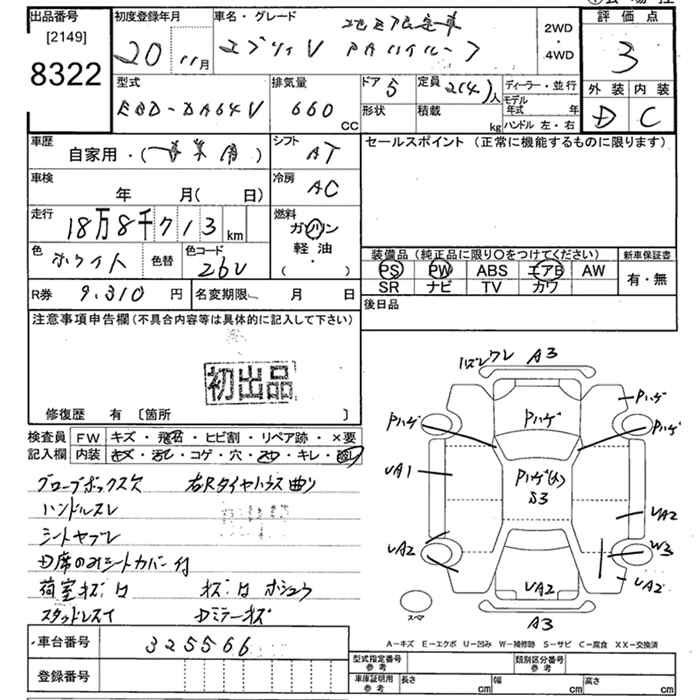 出品番号
[2149]
8322
初度登録年月
20 11月
車名・グレード
エブリィV PAハイルーフ
2WD
・
4WD
評価点
3
外装 内装
D C
型式
EBD-DA64V
排気量
660 cc
ドア 5
形状
定員 2(4)人
積載 kg
ディーラー・並行
モデル年式 年
ハンドル 左・右
車歴
自家用・(事業用)
シフト
AT
セールスポイント (正常に機能するものに限ります)
車検
年 月( 日)
冷房
AC
走行
18万8千713km
燃料
ガソリン
軽油
・
色
ホワイト
色替
色コード
26U
装備品 (純正品に限り○をつけてください)
新車保証書
PS PW ABS エアB AW
SR ナビ TV カワ
有・無
R券 9,310円
名変期限 月 日
後日品
注意事項申告欄(不具合内容等は具体的に記入して下さい)
初出品
修復歴 有 [箇所 ]
検査員 FW キズ・飛石・ヒビ割・リペア跡・×要
記入欄 内装 キズ・汚れ・コゲ・穴・スリ・キレ・
グローブボックス欠 右Rタイヤハウス曲り
ハンドルスレ
シートヤブレ
D席のみシートカバー付
荷室キズ・凹 キズ・凹 ホシュウ
スタッドレスイ Dミラーキズ
バンパワレ A3
Pハゲ
Pハゲ
Pハゲ
Pハゲ
UA1
Pハゲ(大)
S3
UA2
UA2
W3
UA2
UA2
スペア
A3
A-キズ E-エクボ U-凹み W-補修跡 S-サビ C-腐食 XX-交換済
車台番号 325566
登録番号
型式指定番号 参考
類別区分番号 参考
車庫証明用 参考 長さ cm 幅 cm 高さ cm